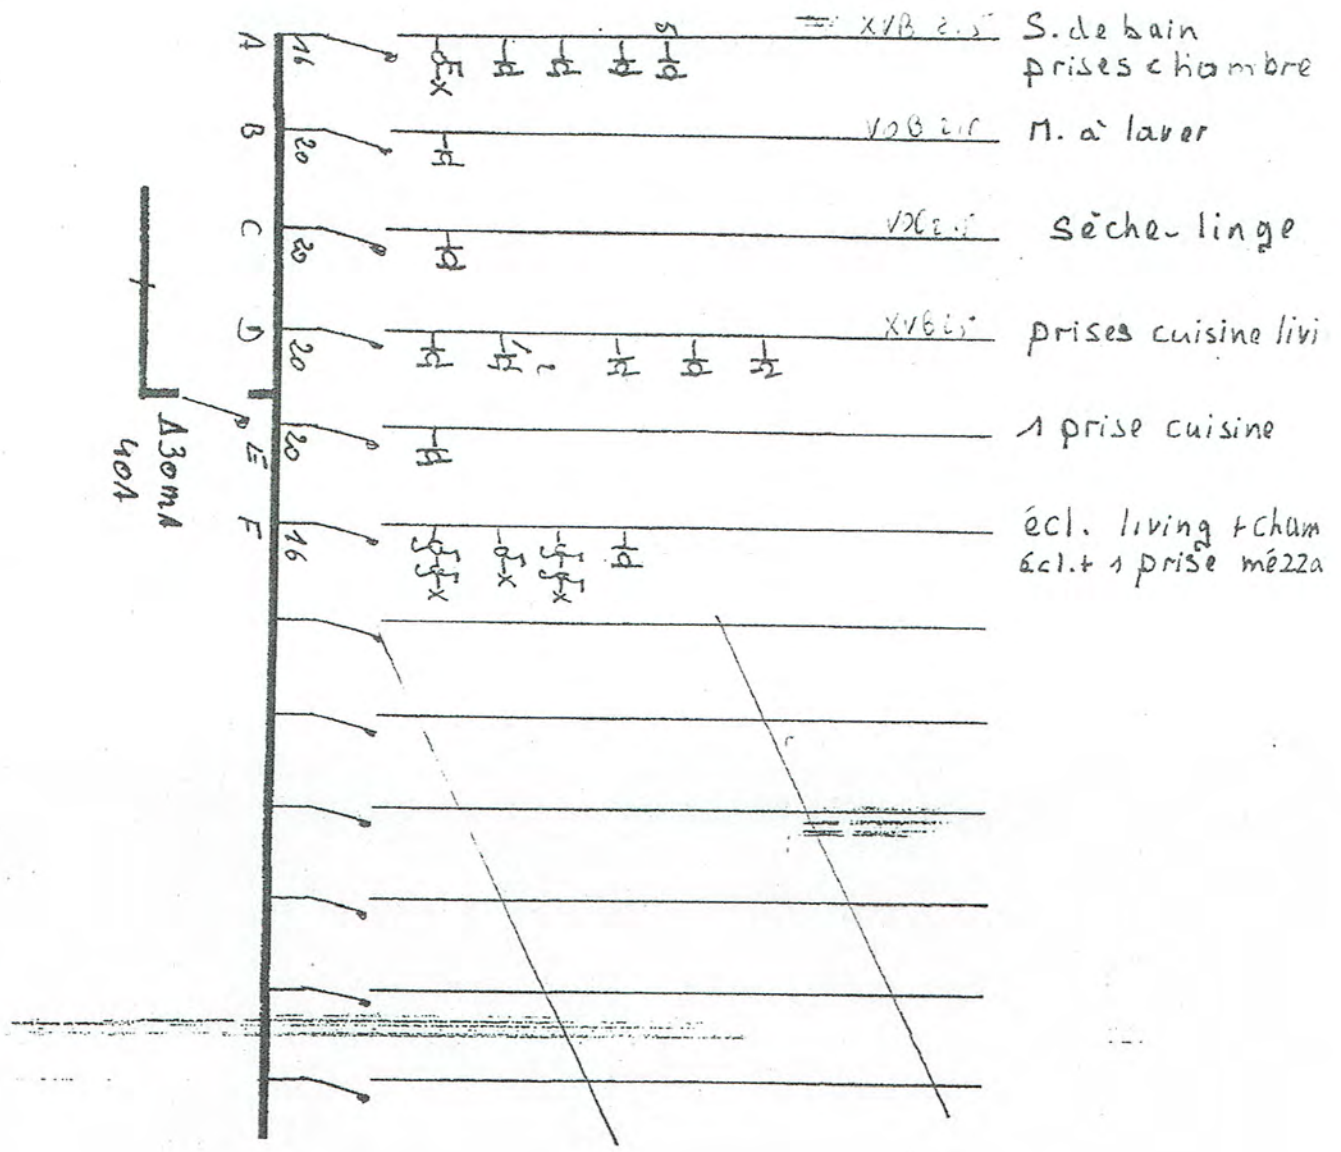 A 16 XVB 2.5 S. de bain
prises chambre
B 20 VOB 2.5 M. à laver
C 20 sèche-linge
D 20 XVB 2,5 prises cuisine livi
E 20 1 prise cuisine
Δ30mA
40A
F 16 écl. living + cham
écl. + 1 prise mézza